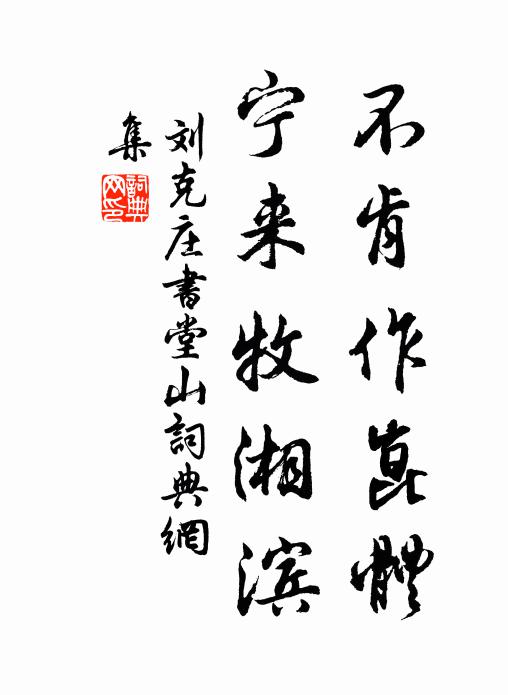 不肯作崑體
宁来牧湘滨
刘克庄書堂山詞典網
集
詞典网印